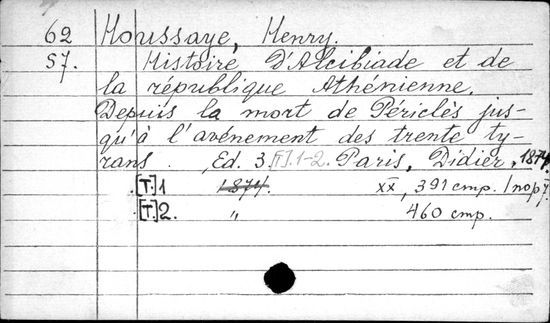 62 Houssaye, Henry.
S7. Histoire D'Alcibiade et de
la république Athénienne.
Depuis la mort de Périclès jus-
qu'à l'avénement des trente ty-
rans. Ed. 3. [T].1-2. Paris, Didier, 1874.
[T.]1 1874. XX, 391 стр. 1 порт.
[T.]2. " 460 стр.